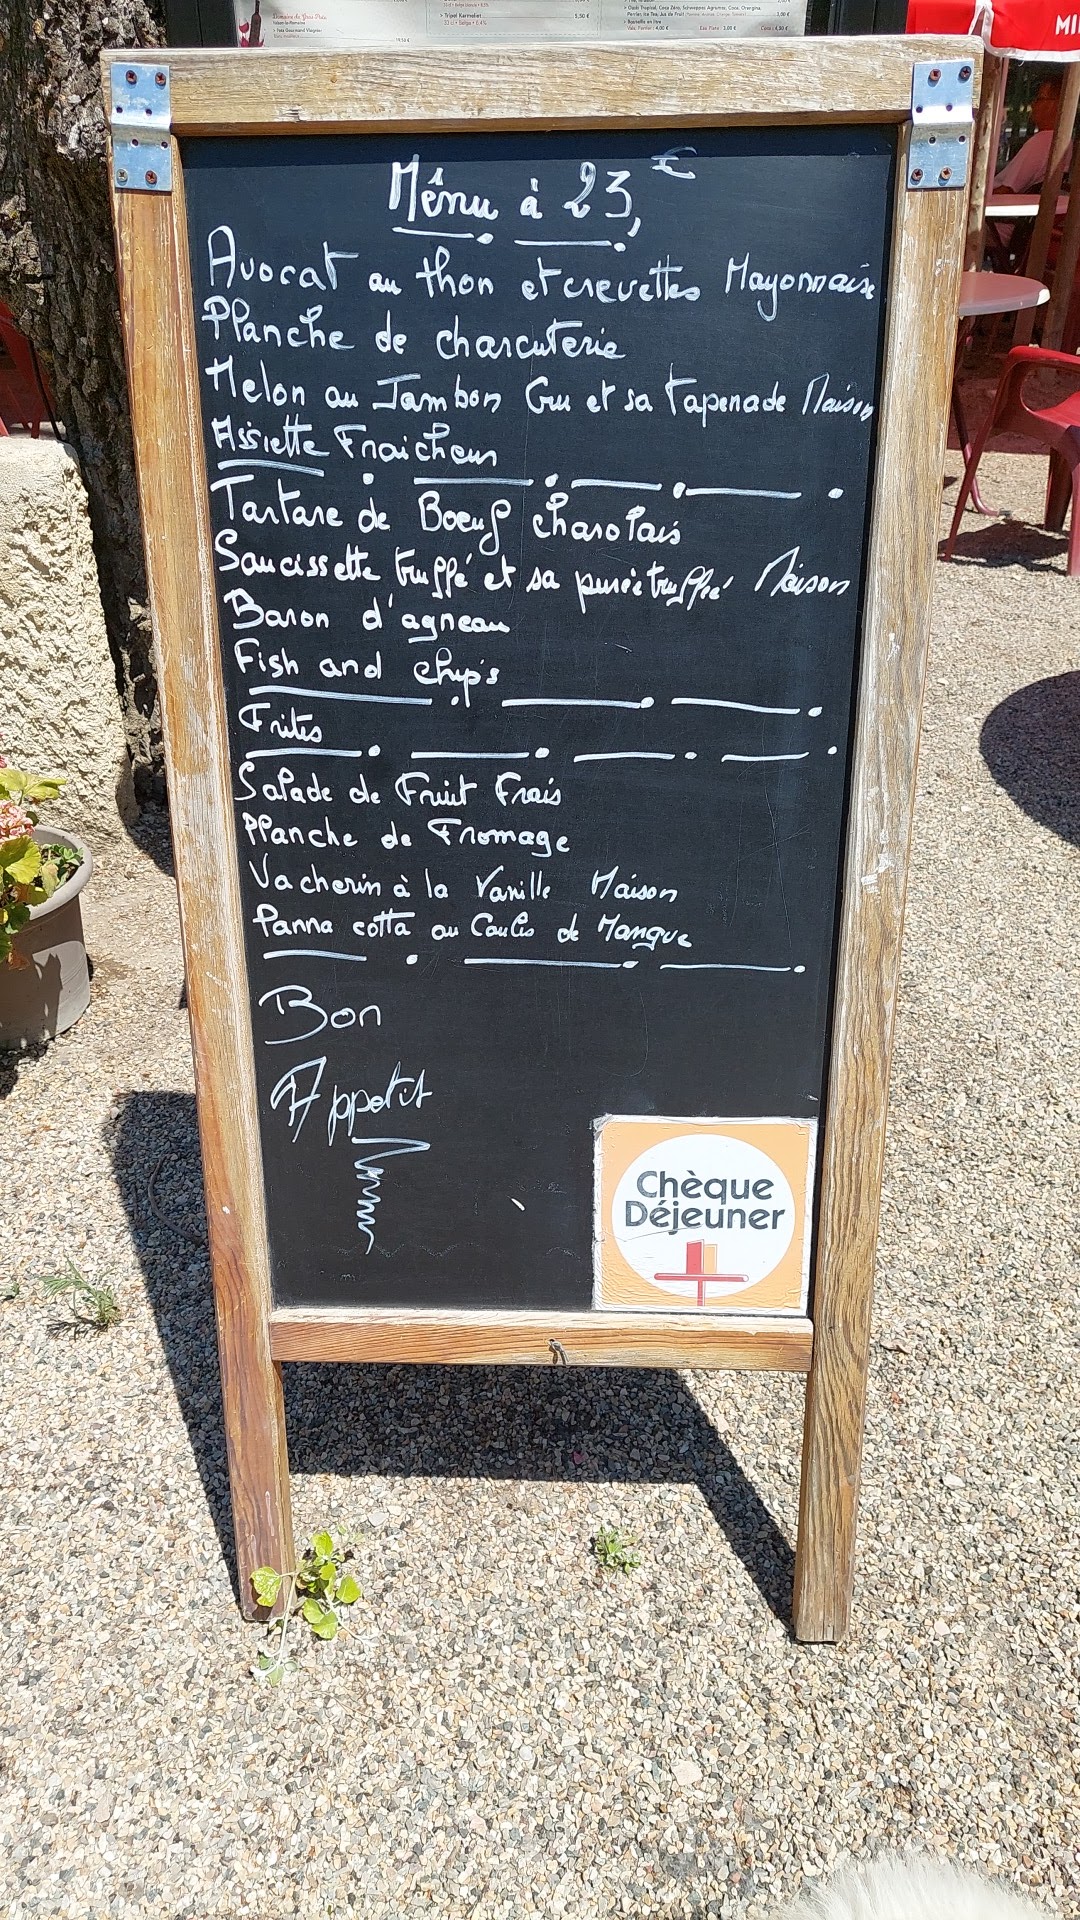 > Tripel Karmeliet 5,50 €
Mênu à 23,€
Avocat au thon et crevettes Mayonnaise
Planche de charcuterie
Melon au Jambon Cru et sa tapenade Maison
Assiette Fraicheur
Tartare de Boeuf charolais
Saucissette truffé et sa purée truffée Maison
Baron d'agneau
Fish and chip's
Frites
Salade de Fruit Frais
Planche de Fromage
Vacherin à la Vanille Maison
Panna cotta au Coulis de Mangue
Bon
Appetit
Chèque
Déjeuner